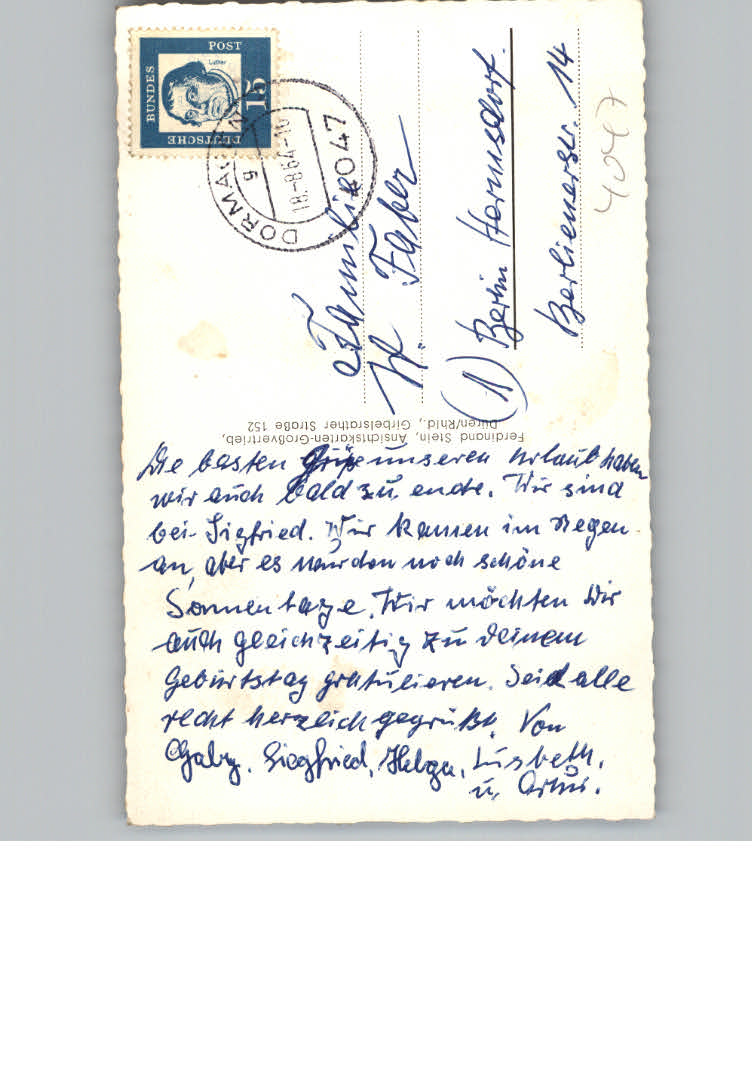 DEUTSCHE
BUNDES
POST
Luther
15
DORMAGEN
g
18.-8.64-10
4047
Familie
W. Faber
(1) Berlin Hermsdorf.
Berlienerstr. 14
4047
Ferdinand Stein, Ansichtskarten-Großvertrieb,
Düren/Rhld., Girbelsrather Straße 152
Die besten Grüße unseren Urlaub haben
wir auch bald zu ende. Wir sind
bei Sigfried. Wir kamen im Regen
an, aber es wurden noch schöne
Sonnentage. Wir möchten Dir
auch gleichzeitig zu deinem
Geburtstag gratulieren. Seid alle
recht herzlich gegrüßt. Von
Gaby. Siegfried, Helga, Lisbeth.
u. Artur.